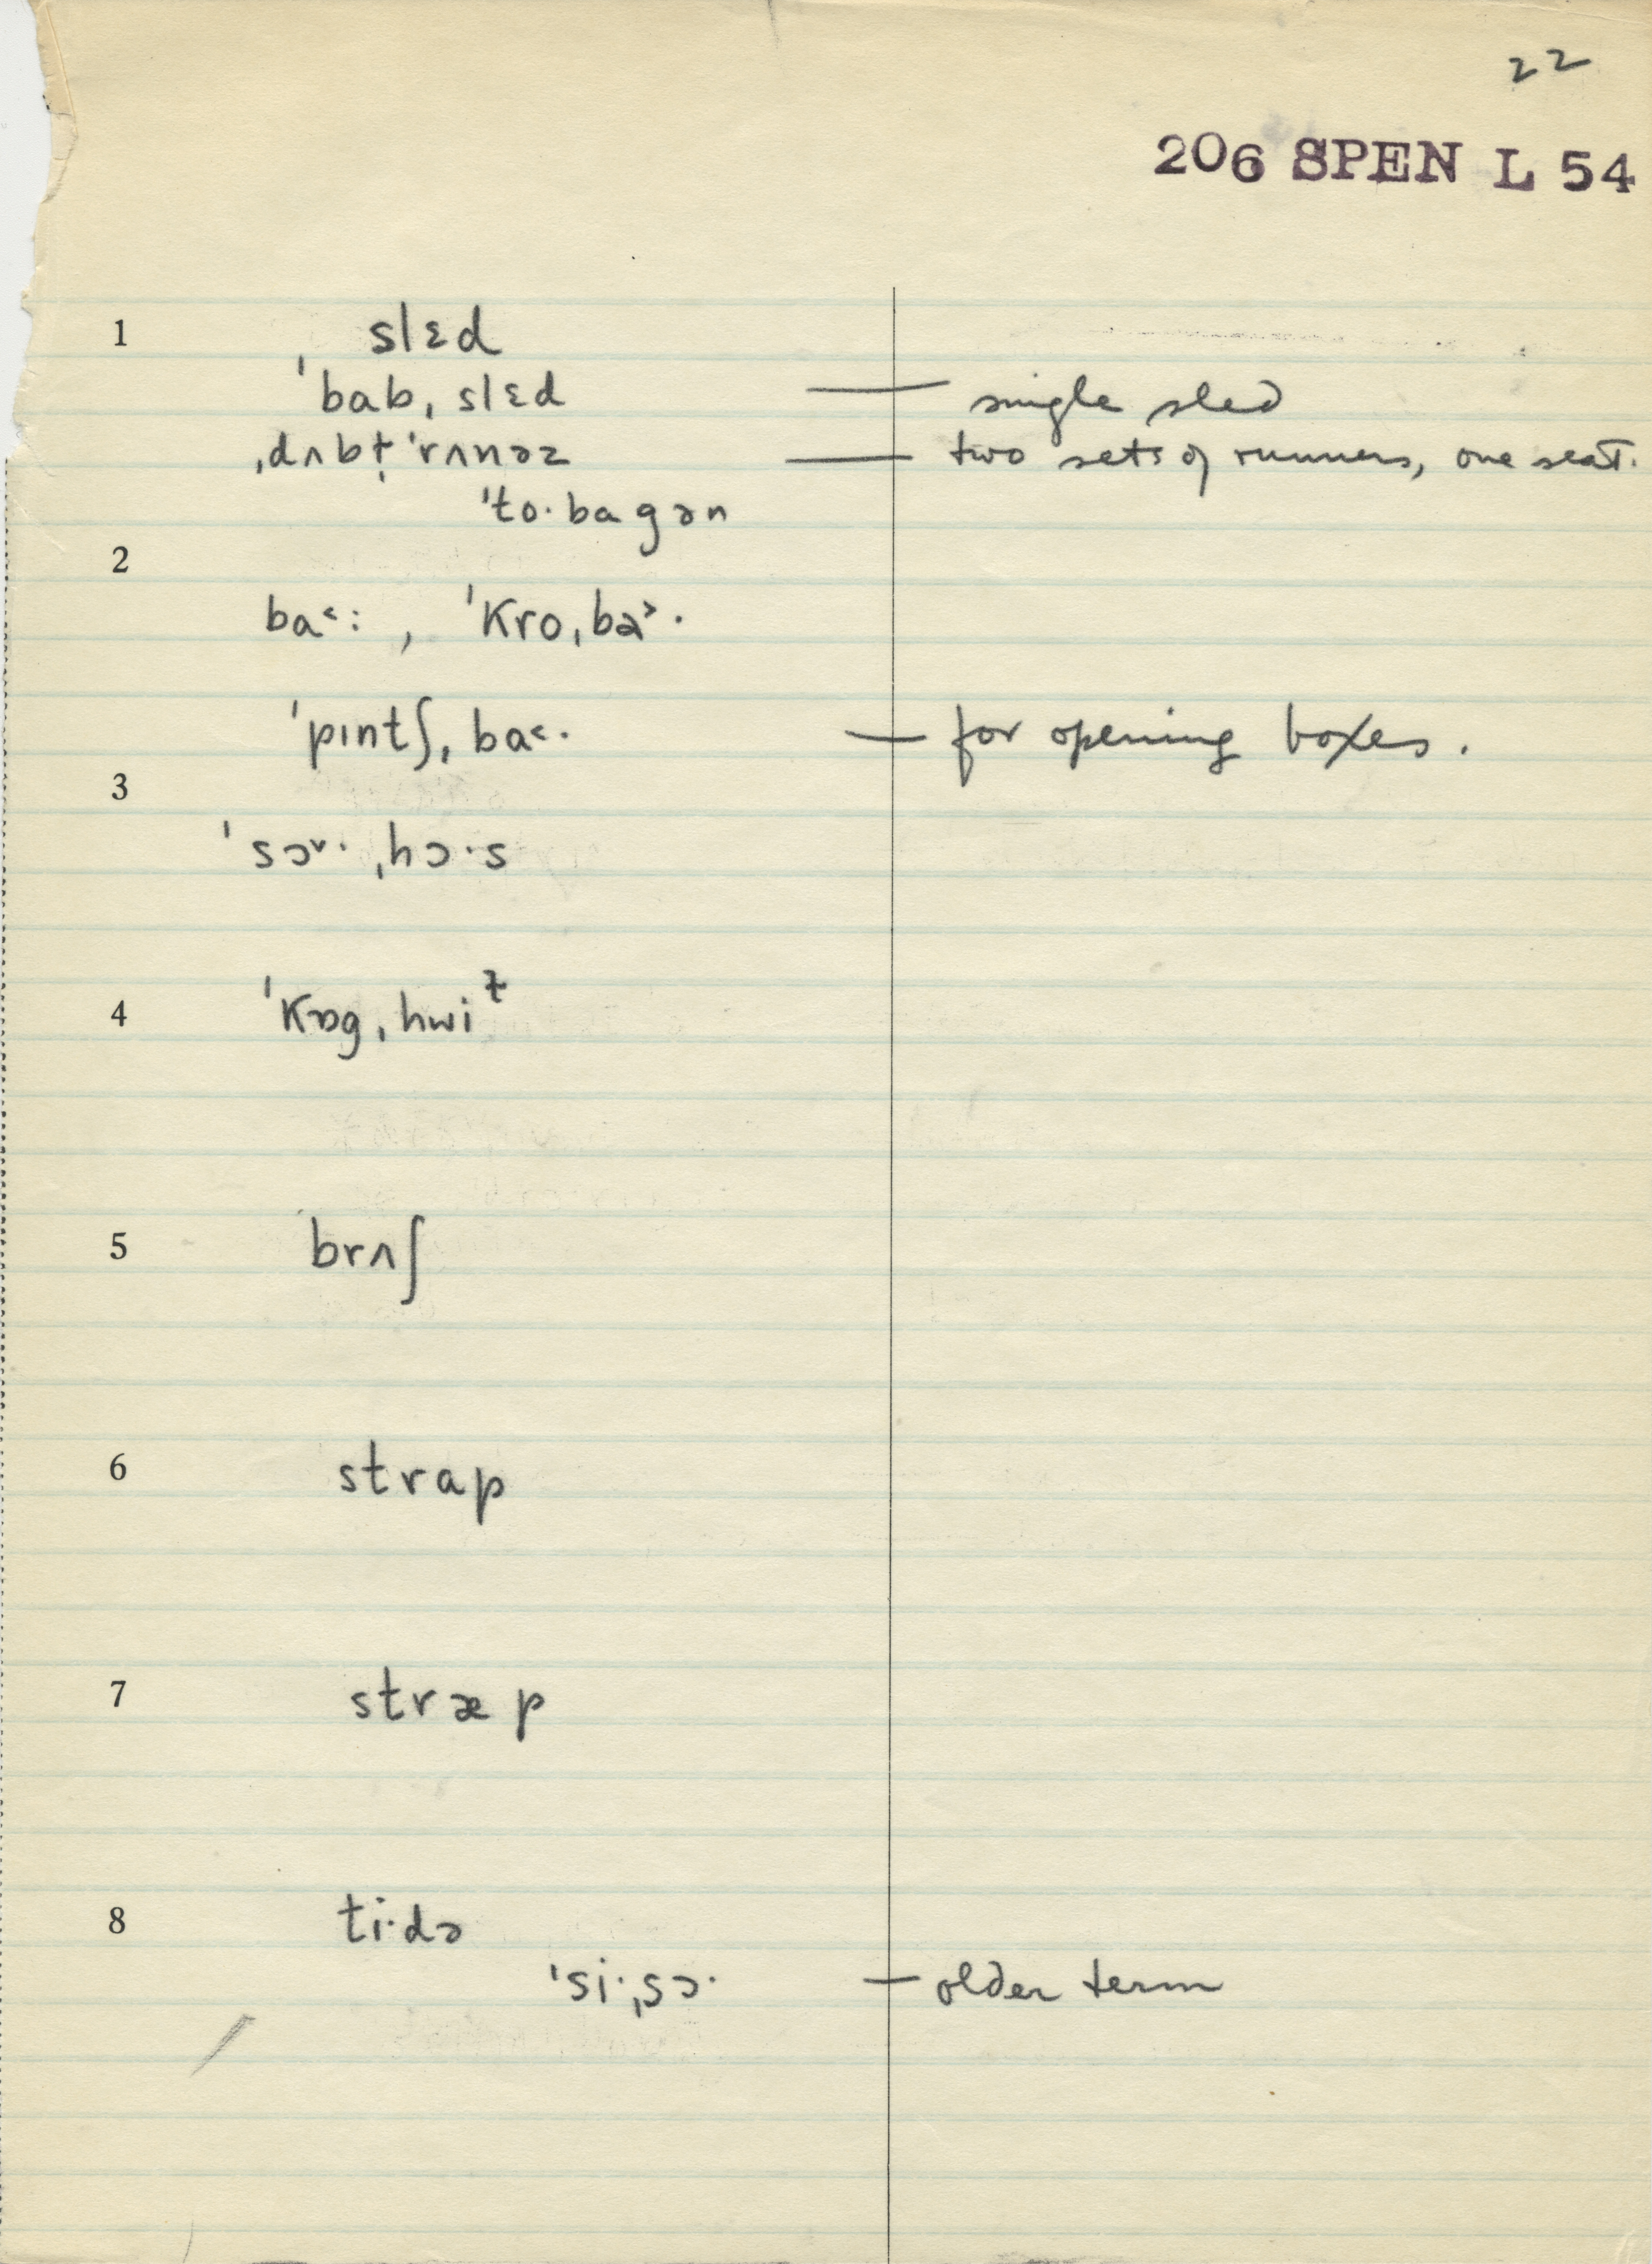 22
206 SPEN L 54
1 slɛd
ˈbabˌslɛd — single sled
ˌdʌbt̩ ˈrʌnəz — two sets of runners, one seat.
ˈto·bagən
2
ba˂: , ˈkroˌba˃·
ˈpɪntʃˌba˂· — for opening boxes.
3
ˈsɔ˅·ˌhɔ·s
4 ˈkɒgˌhwiɫ
5 brʌʃ
6 strap
7 stræp
8 ti·də
ˈsi·ˌsɔ· — older term